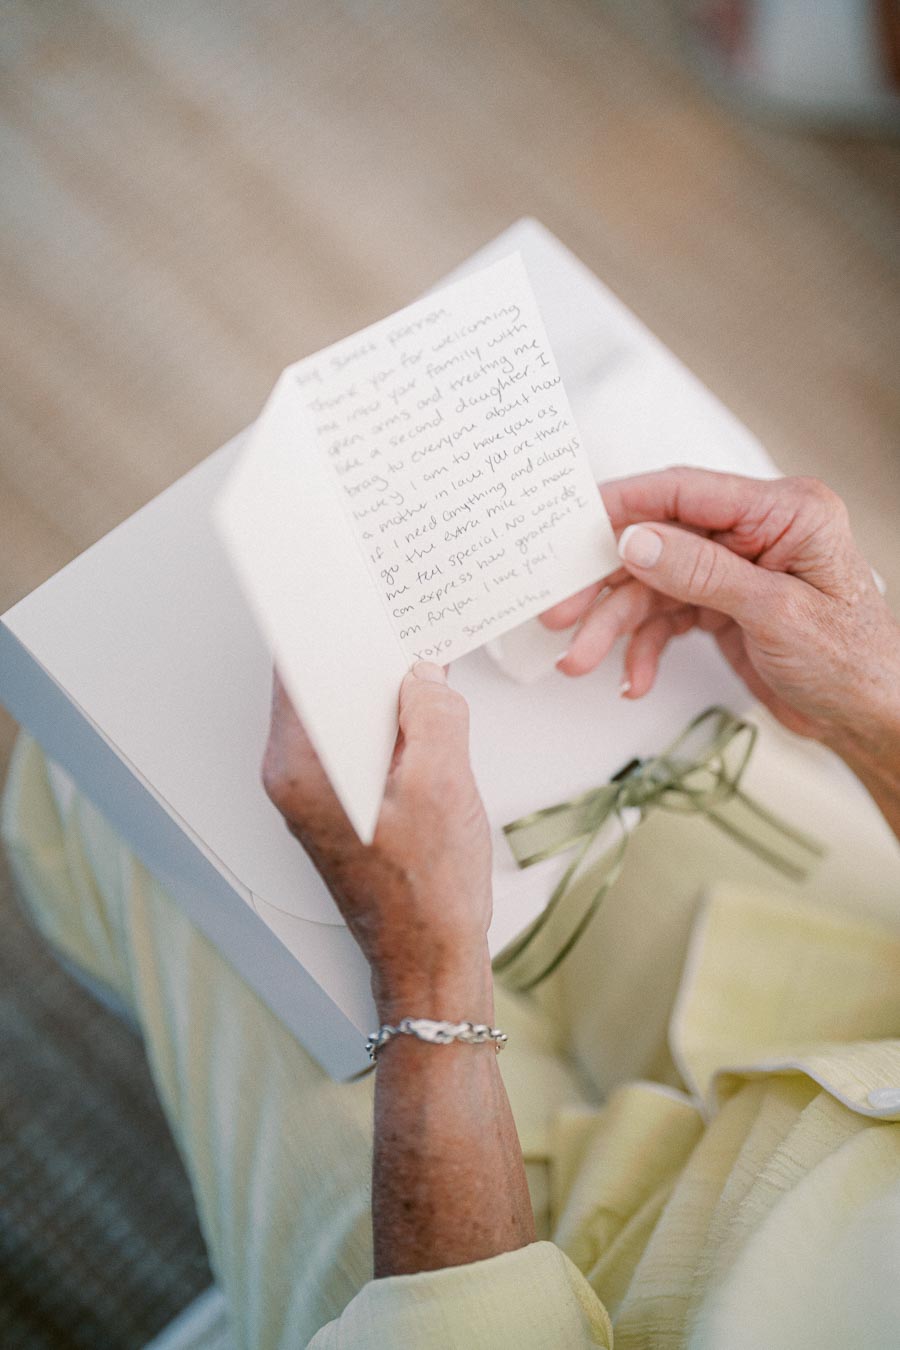 My sweet
Thank you for welcoming
me into your family with
open arms and treating me
like a second daughter. I
brag to everyone about how
lucky I am to have you as
a mother in law. You are there
if I need anything and always
go the extra mile to make
me feel special. No words
can express how grateful I
am for you. I love you!
xoxo Samantha